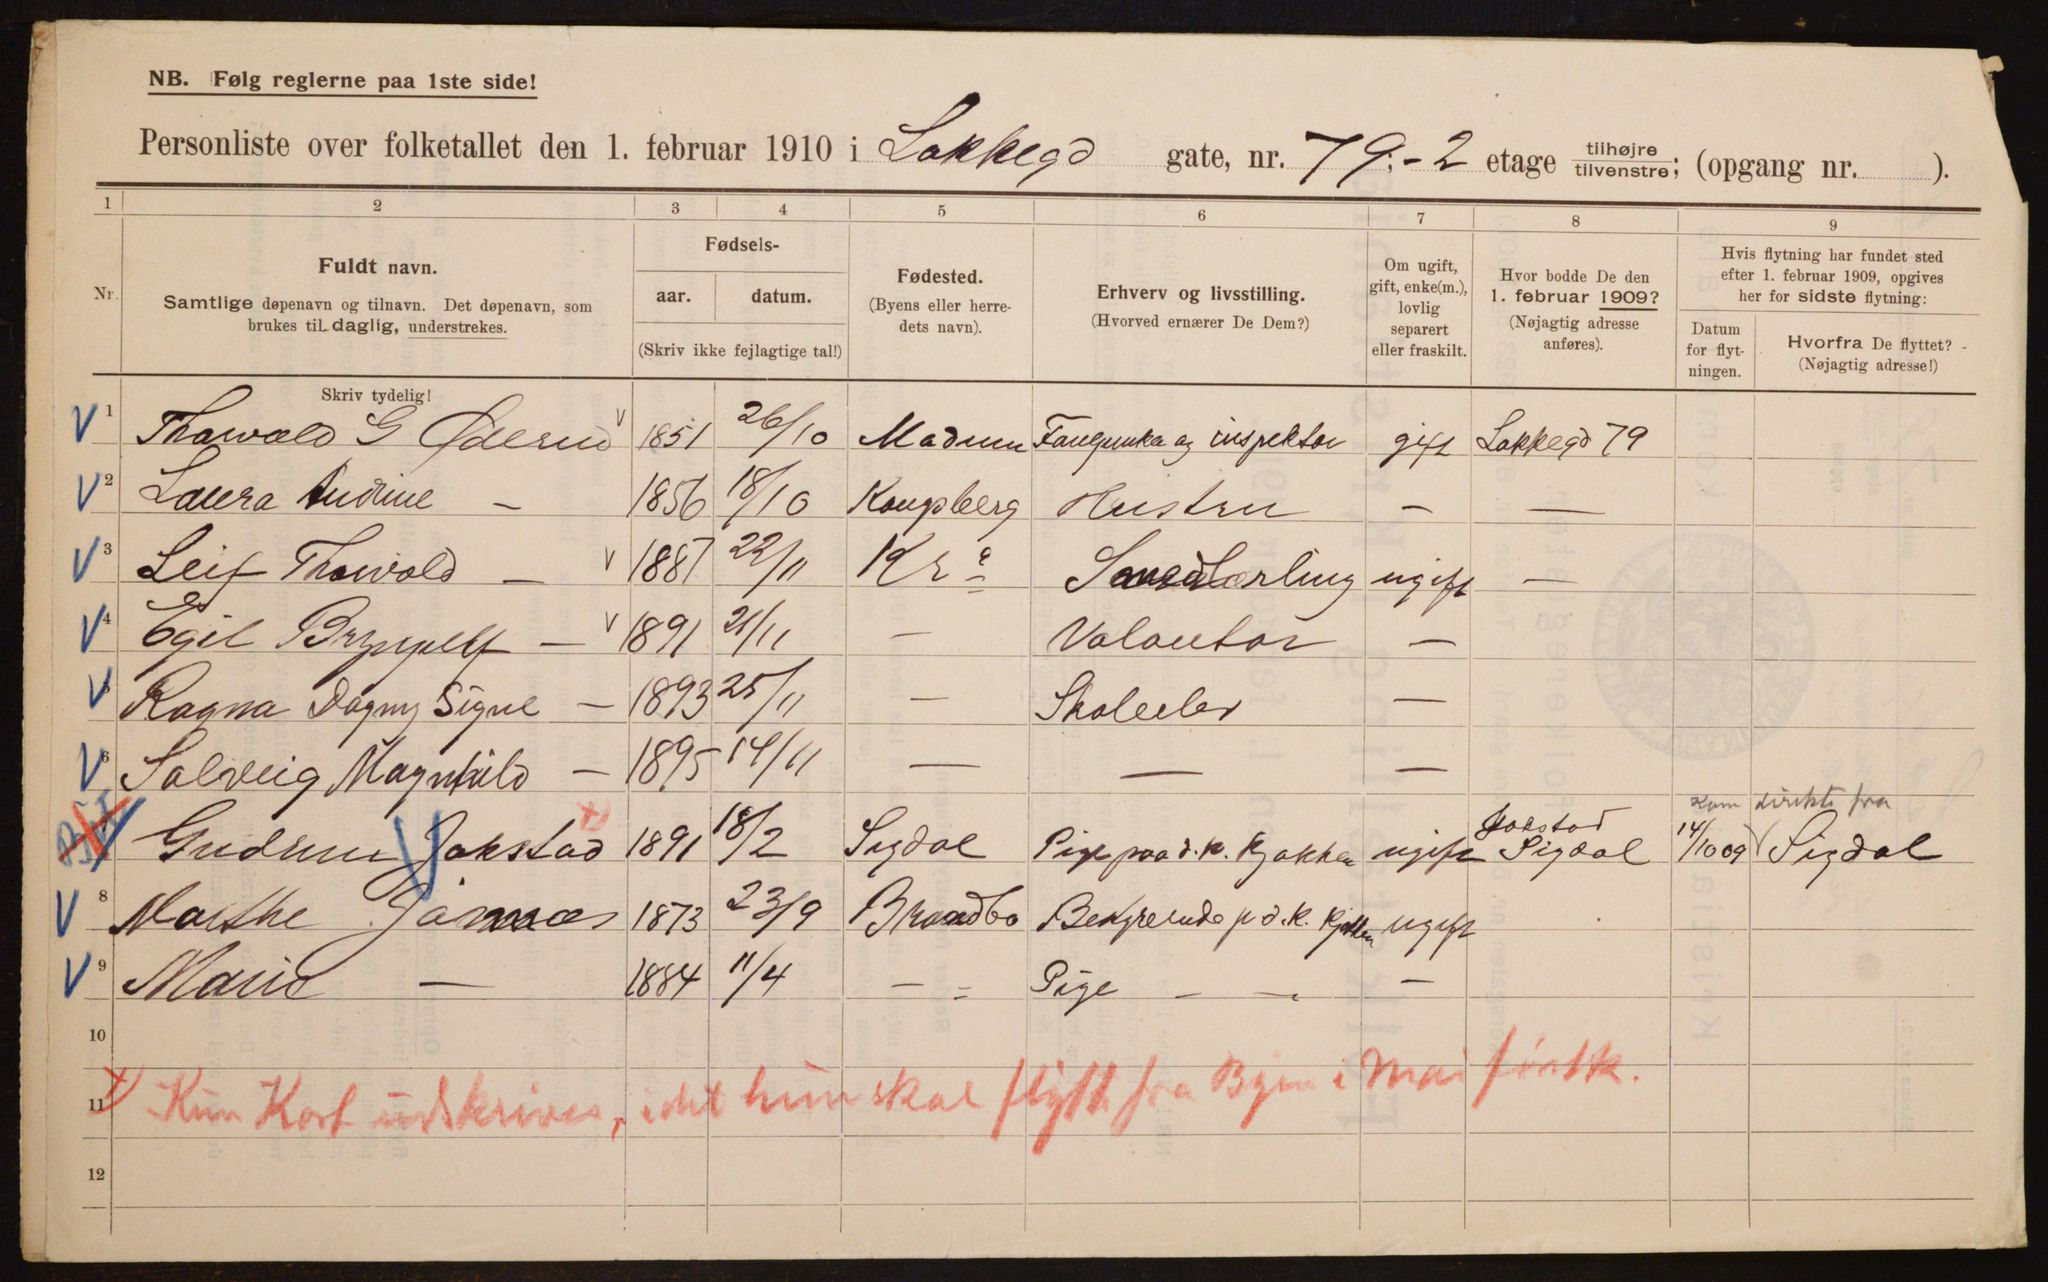 NB. Følg reglerne paa 1ste side!
Personliste over folketallet den 1. februar 1910 i Lakkegd gate, nr. 79;-2 etage tilhøjre tilvenstre; (opgang nr. ).
1 2 3 4 5 6 7 8 9
Nr.
Fuldt navn.
Samtlige døpenavn og tilnavn. Det døpenavn, som
brukes til daglig, understrekes.
Skriv tydelig!
Fødsels-
aar. datum.
(Skriv ikke fejlagtige tal!)
Fødested.
(Byens eller herre-
dets navn).
Erhverv og livsstilling.
(Hvorved ernærer De Dem?)
Om ugift,
gift, enke(m.),
lovlig
separert
eller fraskilt.
Hvor bodde De den
1. februar 1909?
(Nøjagtig adresse
anføres).
Hvis flytning har fundet sted
efter 1. februar 1909, opgives
her for sidste flytning:
Datum
for flyt-
ningen.
Hvorfra De flyttet?
(Nøjagtig adresse!)
1 Thorvald G Øderud 1851 26/10 Modum og inspektor gift Lakkegd 79
2 Laura Andrine — 1856 18/10 Kongsberg Hustru — —
3 Leif Thorvald — 1887 22/11 Kr a ugift —
4 Egil — 1891 21/11 — Volontør —
5 Ragna Dagny Signe — 1893 25/11 — Skoleelev —
6 Solveig Magnhild — 1895 14/11 — — —
kom direkte fra
7 Gudrun Jokstad 1891 18/2 Sigdal Pige paa d.k. Kjøkken ugift Jokstad Sigdal 14/10 09 Sigdal
8 Marthe 1873 23/9 Brandbo p d.k. Kjøkken ugift
9 Marie — 1884 11/4 — Pige — — —
10
11 x) Kun Kort udskrives, idet hun skal flytte fra Byen i Mai førstk.
12